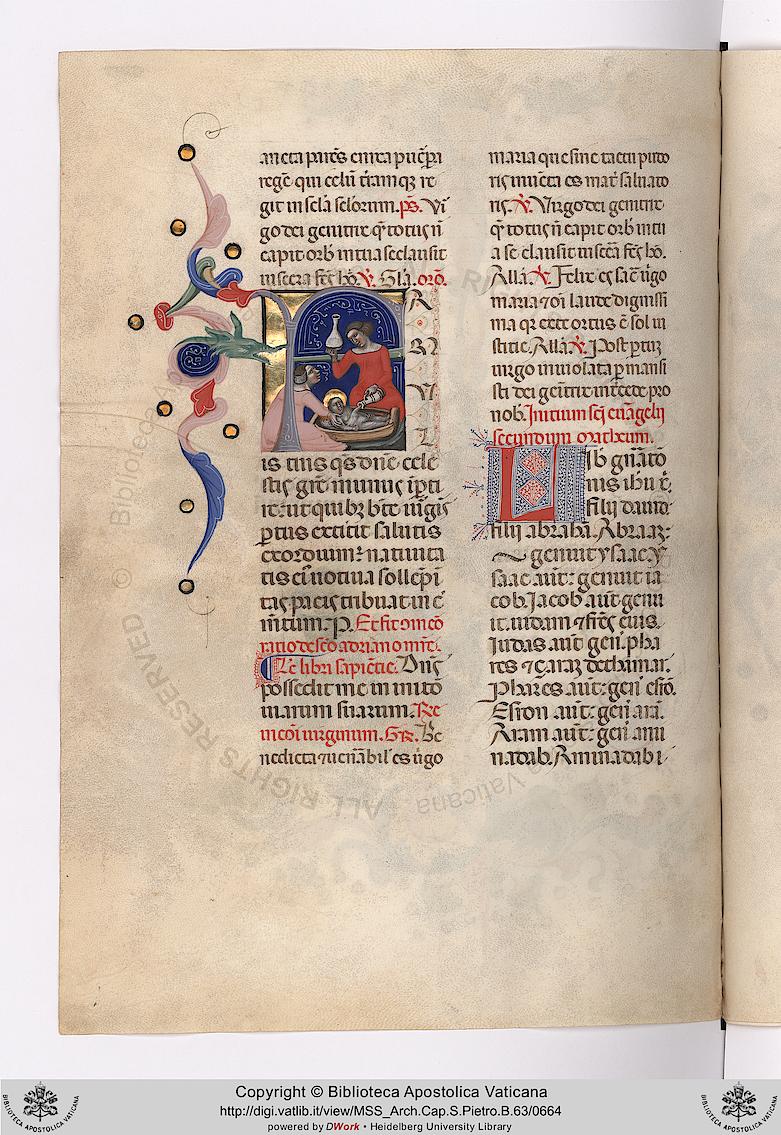 ancta parēs enixa puēpa
regē qui celū t̄ramqȝ re
git in scl̄a sclorum. ps̄. Vi
go dei genitrix q̄ totus n̄
capit orb' in tua se clausit
viscera fc̄s hō. V. Gl̄a. orō.
F A
M
V
L
is tuis q̄s dn̄e cele
stis gr̄e munus īpti
re: ut quibȝ bt̄e v̄gis
ꝑtus extitit salutis
exordium: natiuita
tis ei' uotiua sollēpni
tas pacis tribuat in c̄
m̄tum. P. Et fit o m̄eo
ratio de sc̄o adriano m̄re.
Lc̄ libri sapiēcie. Dn̄s
possedit me in initio
uiarum suarum. Re
in cōi uirginum. GR. Be
nedicta ⁊ uēnabil' es ūgo
maria que sine tactu pudo
ris inuēta es mat̄ saluato
ris. V. Virgo dei genitrix
q̄ totus n̄ capit orb' in tu
a se clausit uiscēa fc̄s hō.
All̄a. V. Felix es sac̄ ūgo
maria ⁊ oī laude dignissi
ma q̄ ex te ortus ē sol iu
sticie. All̄a. V. Post ꝑtū
uirgo inuiolata ꝑmansi
sti dei genit̄x int̄cede pro
nob. Initium sc̄i euāgelij
secundum Matheum.
LIb' gn̄atō
nis ih̄u x̄.
filij dauid
filij abraha. Abraaȝ
genuit ysaac. Y
saac aut̄ genuit ia
cob. Jacob aut̄ genu
it iudam ⁊ fr̄es eius.
Iudas aut̄ gen̄. pha
res ⁊ çaraȝ de thamar.
Phares aut̄ gen̄ esrō.
Esron aut̄ gen̄ arā.
Aram aut̄ gen̄ ami
nadab. Aminadab
Copyright © Biblioteca Apostolica Vaticana
http://digi.vatlib.it/view/MSS_Arch.Cap.S.Pietro.B.63/0664
powered by DWork • Heidelberg University Library
BIBLIOTECA APOSTOLICA VATICANA
BIBLIOTECA APOSTOLICA VATICANA
© Biblioteca Apostolica Vaticana
ALL RIGHTS RESERVED